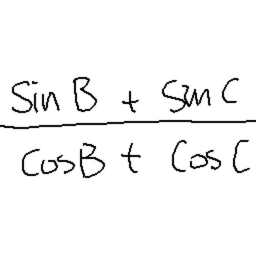 Sin B + Sin C
Cos B + Cos C